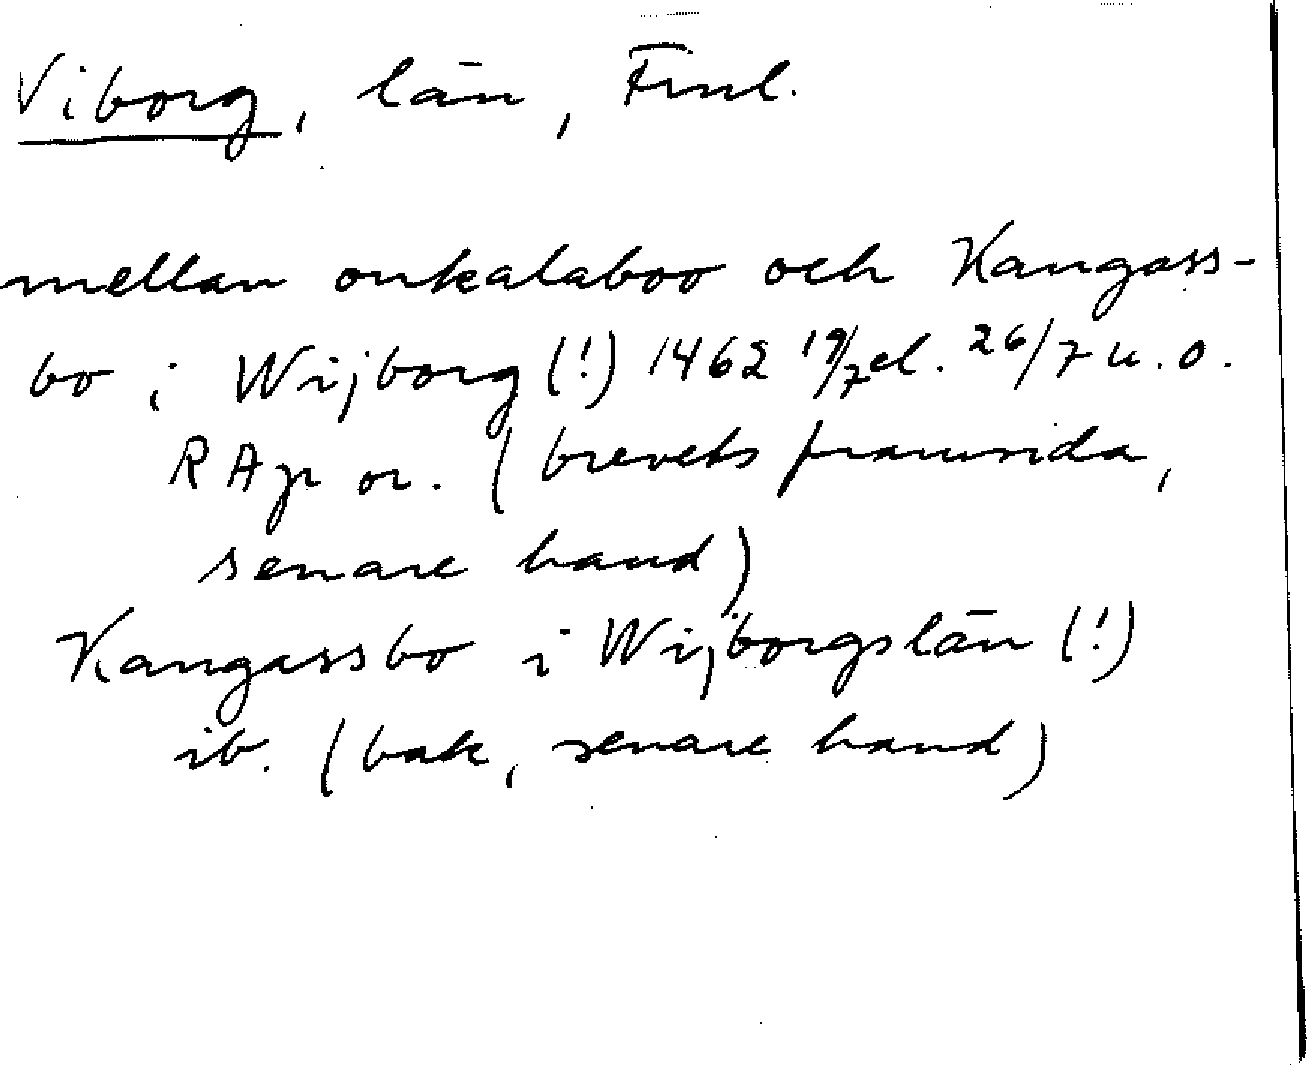 Viborg, län, Finl.
mellan onkalaboo och Kangass-
bo i Wijborg (!) 1462 19/7 el. 26/7 u. o.
RAp or. (brevets framsida,
senare hand)
Kangassbo i Wijborgslän (!)
ib. (bak, senare hand)